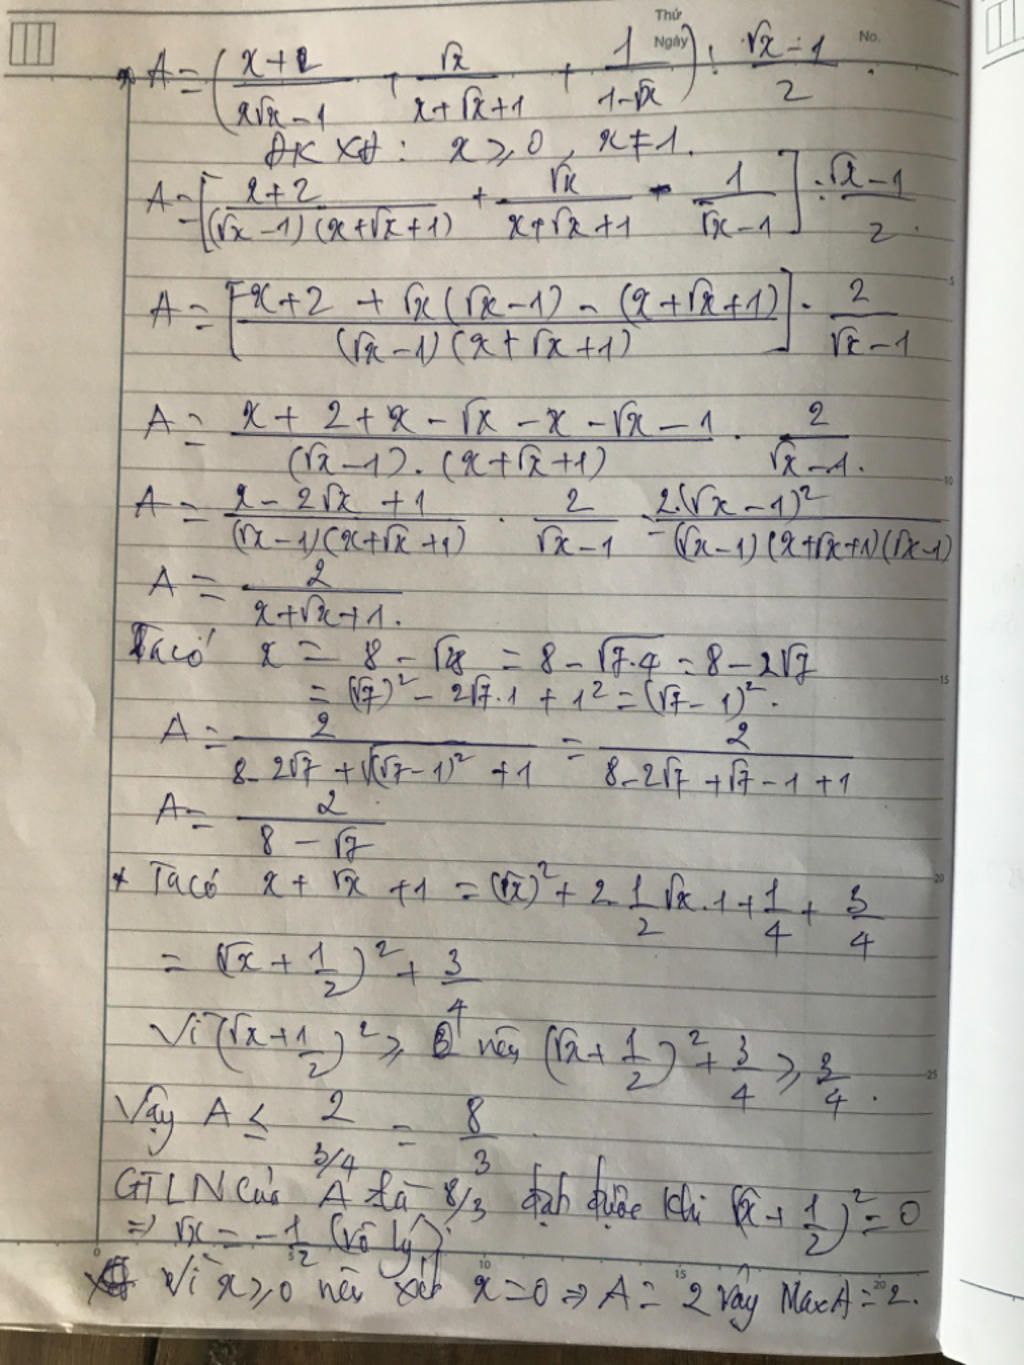 Thứ
Ngày
No.
* A = (x+2/x√x-1 + √x/x+√x+1 + 1/1-√x) : √x-1/2.
ĐKXĐ: x ≥ 0, x ≠ 1.
A = [x+2/(√x-1)(x+√x+1) + √x/x+√x+1 - 1/√x-1] : √x-1/2.
A = [x+2 + √x(√x-1) - (x+√x+1)/(√x-1)(x+√x+1)] . 2/√x-1
A = x+2+x-√x-x-√x-1/(√x-1).(x+√x+1) . 2/√x-1.
A = x-2√x+1/(√x-1)(x+√x+1) . 2/√x-1 = 2.(√x-1)²/(√x-1)(x+√x+1)(√x-1)
A = 2/x+√x+1.
Ta có x = 8 - √28 = 8 - √7.4 = 8 - 2√7
= (√7)² - 2√7.1 + 1² = (√7-1)².
A = 2/8-2√7+√(√7-1)²+1 = 2/8-2√7+√7-1+1
A = 2/8-√7
* Ta có x + √x + 1 = (√x)² + 2.1/2√x.1 + 1/4 + 3/4
= (√x + 1/2)² + 3/4
Vì (√x+1/2)² ≥ 0 nên (√x+1/2)² + 3/4 ≥ 3/4.
Vậy A ≤ 2/3/4 = 8/3
GTLN của A là 8/3 đạt được khi (√x+1/2)² = 0
=> √x = -1/2 (vô lý)
0 5 10 15 20 25
Vì x ≥ 0 nên xét x = 0 => A = 2 vậy MaxA = 2.